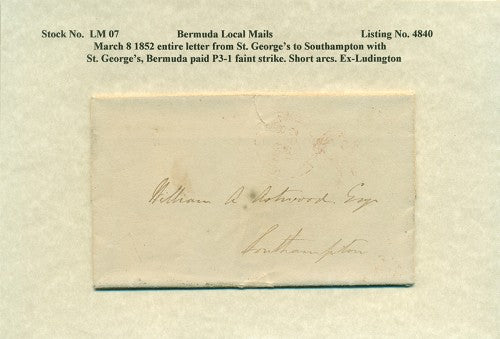 Stock No. LM 07 Bermuda Local Mails Listing No. 4840
March 8 1852 entire letter from St. George's to Southampton with
St. George's, Bermuda paid P3-1 faint strike. Short arcs. Ex-Ludington
William A Astwood Esqr
Southampton